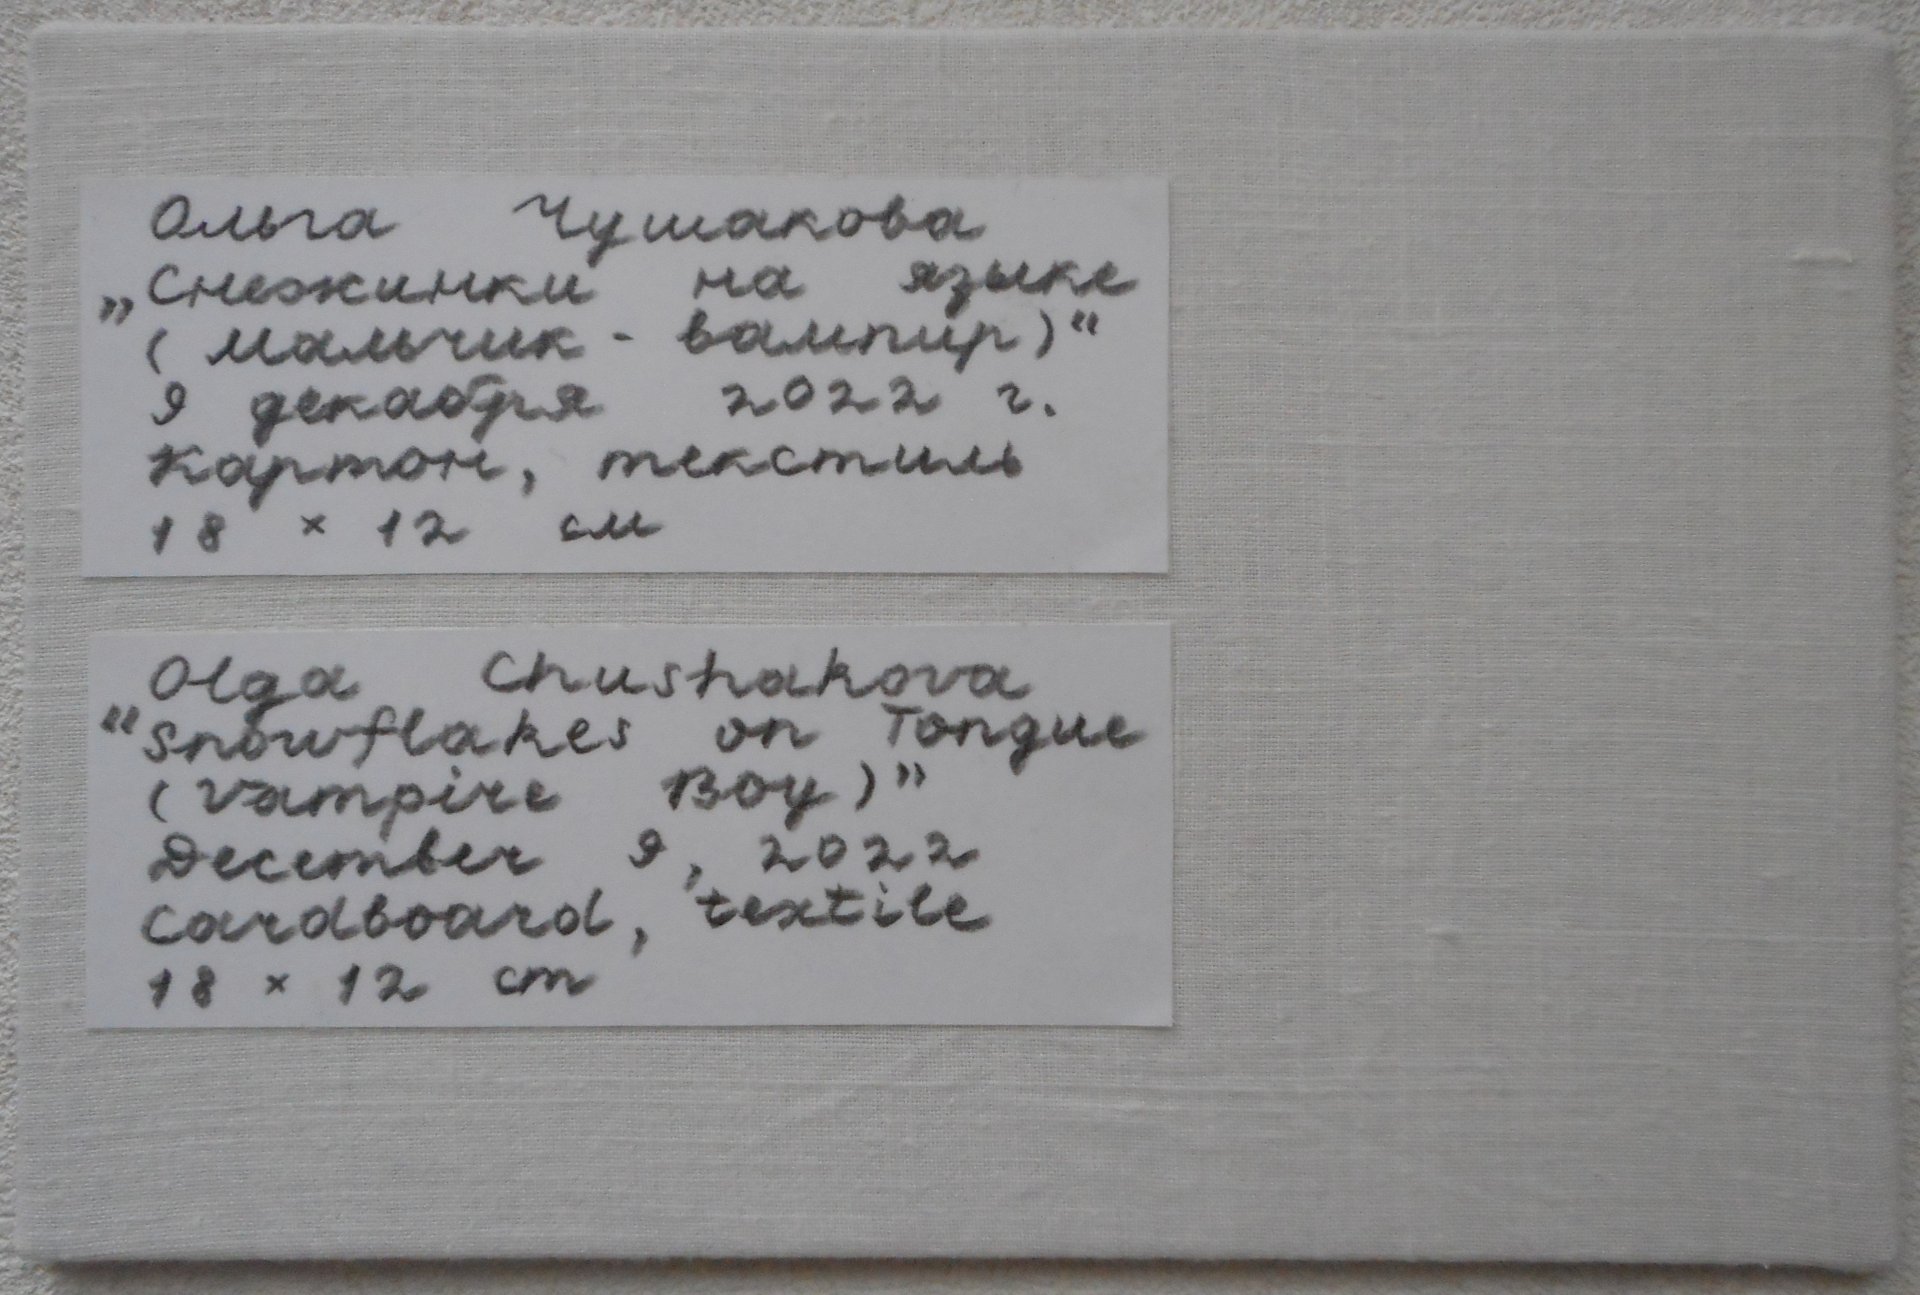 Ольга Чушакова
„Снежинки на языке
(Мальчик - вампир)“
9 декабря 2022 г.
Картон, текстиль
18 × 12 см
Olga Chushakova
“Snowflakes on Tongue
(Vampire Boy)”
December 9, 2022
Cardboard, textile
18 × 12 cm